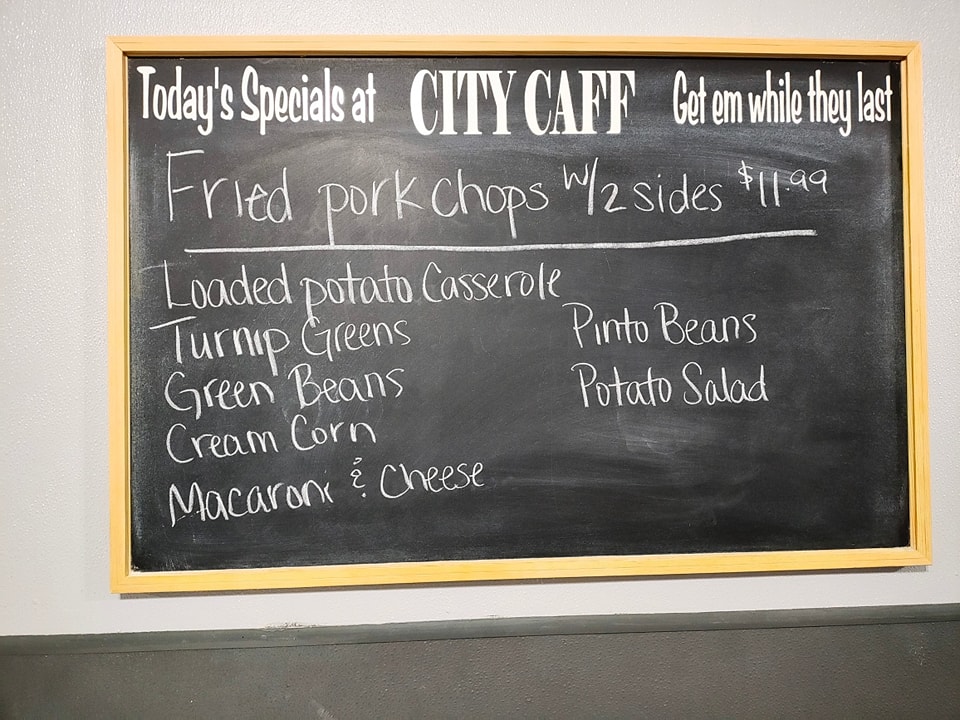 Today's Specials at CITY CAFF Get em while they last
Fried pork chops w/2 sides $11.99
Loaded potato Casserole
Turnip Greens
Green Beans
Cream Corn
Macaroni & Cheese
Pinto Beans
Potato Salad